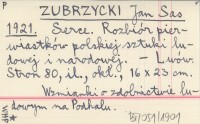 P
ZUBRZYCKI Jan Sas
1921. Serce. Rozbiór pier-
wiastków polskiej sztuki lu-
dowej i narodowej. – Lwów.
Stron 80, il., okł., 16 x 23 cm.
Wzmianki o zdobnictwie lu-
dowym na Podhalu.